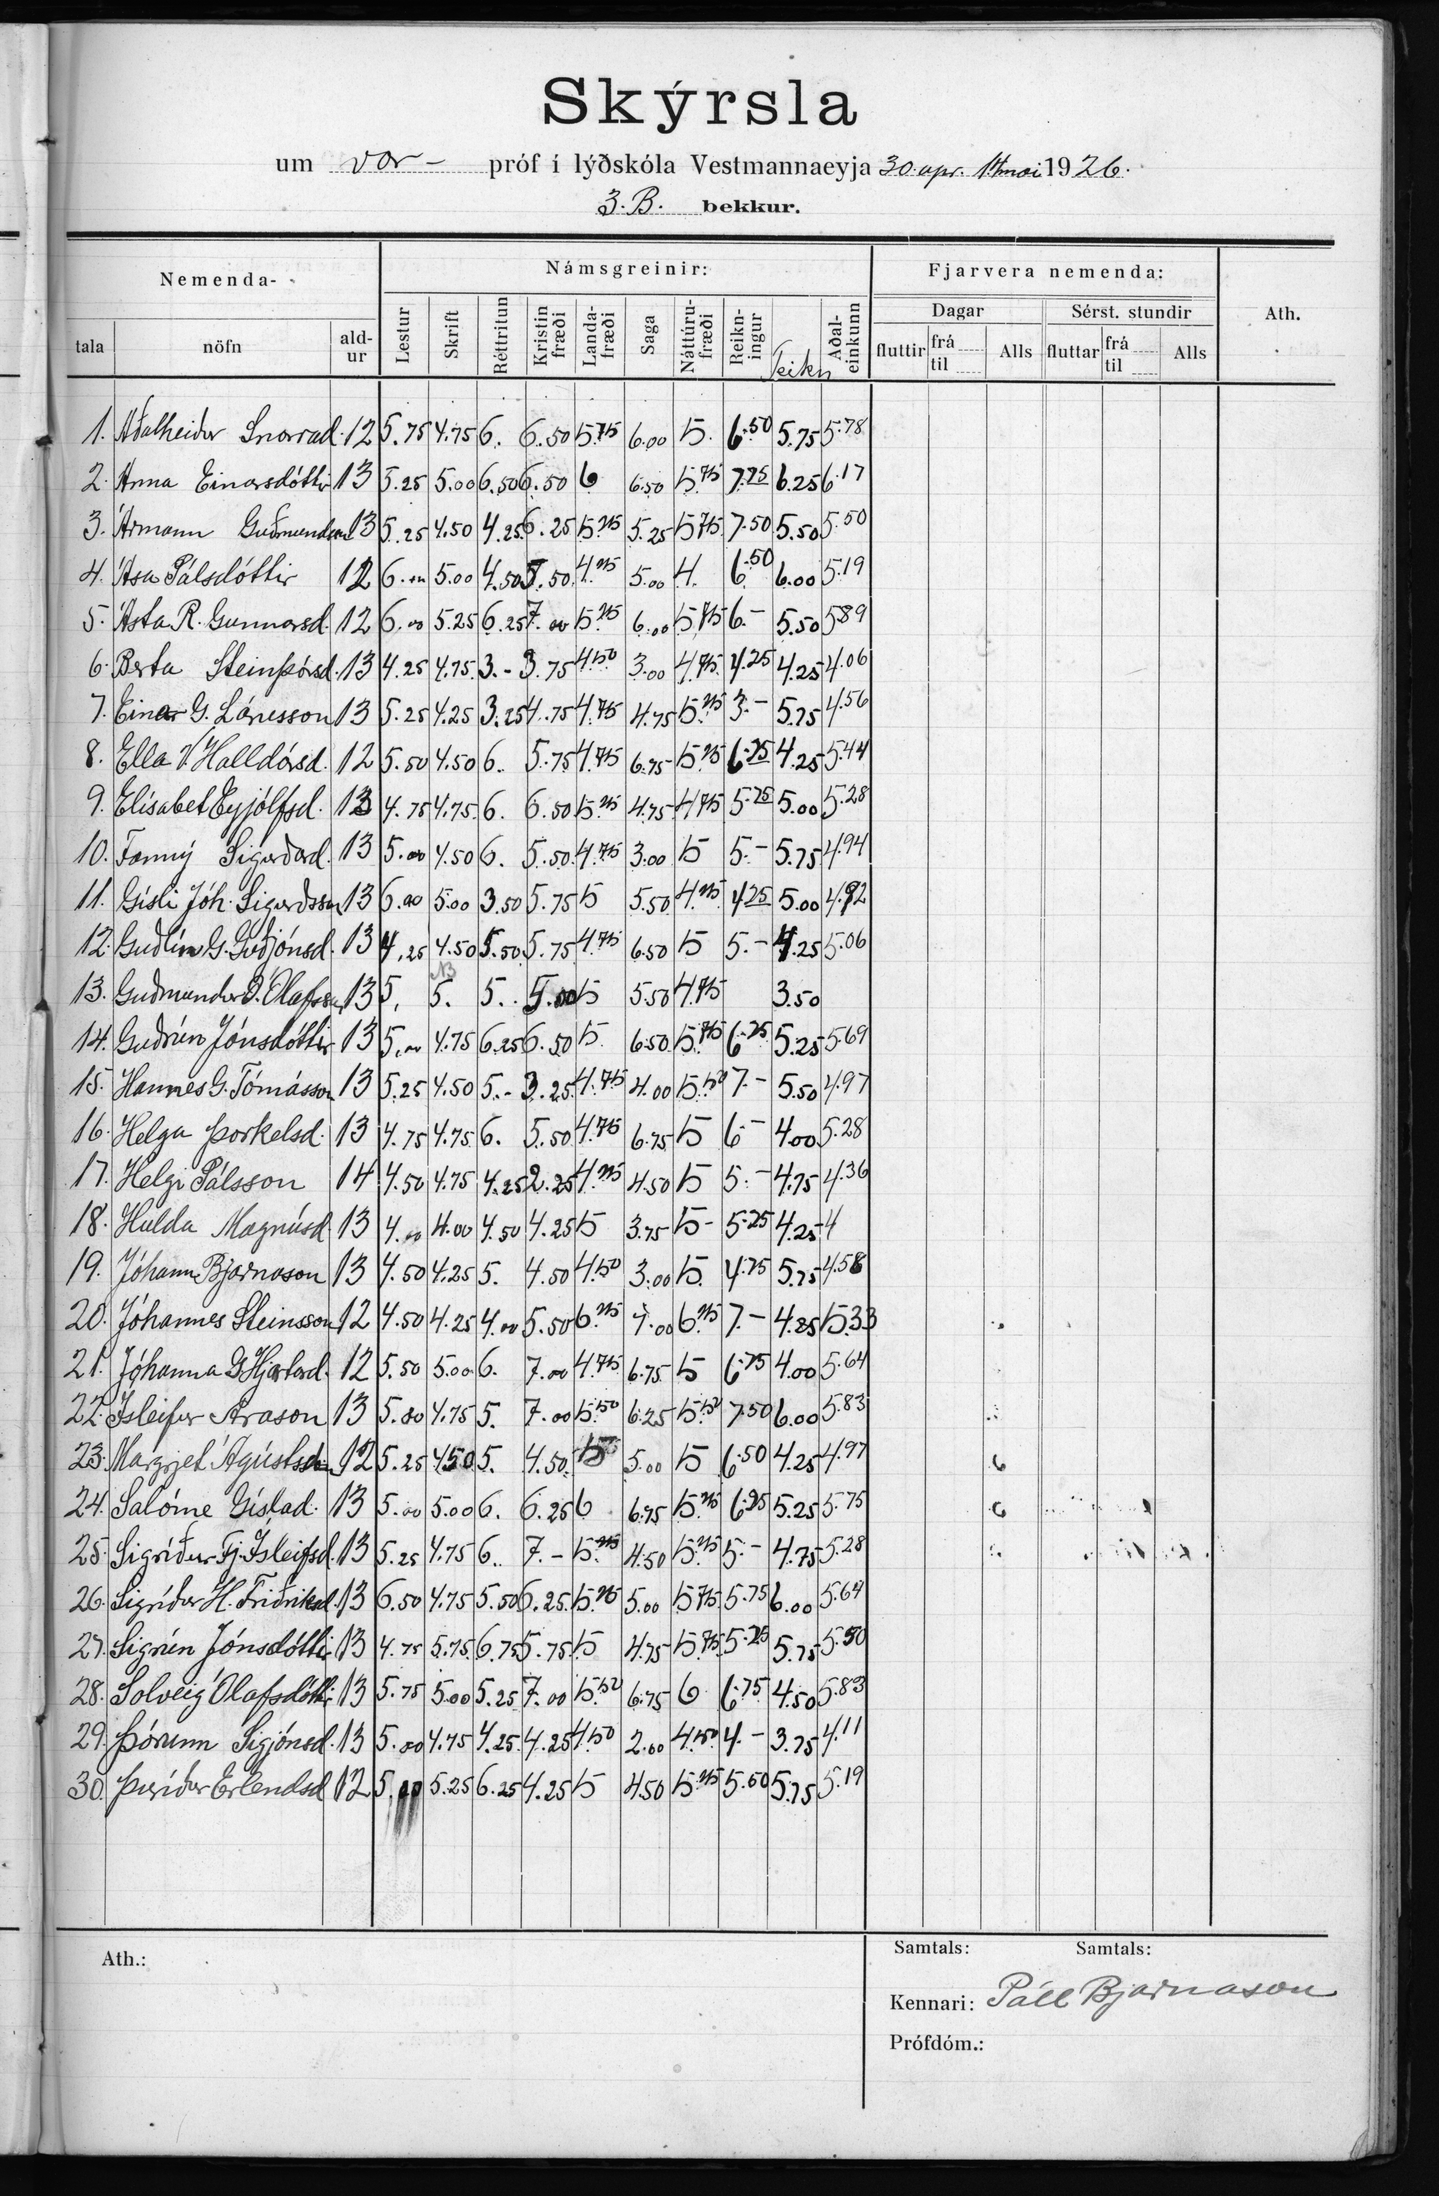 Skýrsla
um vor- próf í lýðskóla Vestmannaeyja 30. apr. 14 mai 1926.
3. B. bekkur.
Nemenda- Námsgreinir: Fjarvera nemenda: Ath.
tala nöfn ald-ur Lestur Skrift Réttritun Kristin fræði Landa-fræði Saga Náttúru-fræði Reikn-ingur Teikn Aðal-einkunn Dagar Sérst. stundir
fluttir frá til Alls fluttar frá til Alls
1. Aðalheiður Snorrad. 12 5.75 4.75 6. 6.50 5.75 6.00 5. 6.50 5.75 5.78
2. Anna Einarsdóttir 13 5.25 5.00 6.50 6.50 6 6.50 5.75 7.25 6.25 6.17
3. Ármann Guðmundsson 13 5.25 4.50 4.25 6.25 5.25 5.25 5.75 7.50 5.50 5.50
4. Ása Pálsdóttir 12 6.00 5.00 4.50 5.50 4.75 5.00 4. 6.50 6.00 5.19
5. Ásta R. Gunnarsd. 12 6.00 5.25 6.25 7.00 5.25 6.00 5.75 6.- 5.50 5.89
6. Berta Steinþórsd. 13 4.25 4.75 3.- 3.75 4.50 3.00 4.75 4.25 4.25 4.06
7. Einar G. Lárusson 13 5.25 4.25 3.25 4.75 4.75 4.75 5.25 3.- 5.75 4.56
8. Ella V. Halldórsd. 12 5.50 4.50 6. 5.75 4.75 6.75 5.25 6.25 4.25 5.44
9. Elísabet Eyjólfsd. 13 4.75 4.75 6. 6.50 5.25 4.75 4.75 5.75 5.00 5.28
10. Fanný Sigurðard. 13 5.00 4.50 6. 5.50 4.75 3.00 5 5.- 5.75 4.94
11. Gísli Jóh. Sigurðsson 13 6.00 5.00 3.50 5.75 5 5.50 4.25 4.25 5.00 4.92
12. Guðlín G. Guðjónsd. 13 4.25 4.50 5.50 5.75 4.75 6.50 5 5.- 4.25 5.06
13. Guðmundur Ólafsson 13 5. 5. 5. 5.00 5 5.50 4.75 3.50
14. Guðrún Jónsdóttir 13 5.00 4.75 6.25 6.50 5 6.50 5.75 6.25 5.25 5.69
15. Hannes G. Tómásson 13 5.25 4.50 5.- 3.25 4.75 4.00 5.50 7.- 5.50 4.97
16. Helga Þorkelsd. 13 4.75 4.75 6. 5.50 4.75 6.75 5 6- 4.00 5.28
17. Helgi Pálsson 14 4.50 4.75 4.25 2.25 4.25 4.50 5 5.- 4.75 4.36
18. Hulda Magnúsd. 13 4.00 4.00 4.50 4.25 5 3.75 5- 5.25 4.25 4
19. Jóhann Bjarnason 13 4.50 4.25 5. 4.50 4.50 3.00 5. 4.75 5.75 4.58
20. Jóhannes Steinsson 12 4.50 4.25 4.00 5.50 6.25 7.00 6.25 7.- 4.25 5.33
21. Jóhanna G Hjartard. 12 5.50 5.00 6. 7.00 4.75 6.75 5 6.75 4.00 5.64
22. Ísleifur Árason 13 5.00 4.75 5. 7.00 5.50 6.25 5.50 7.50 6.00 5.83
23. Margrjet Ágústsd. 12 5.25 4.50 5. 4.50 5 5.00 5 6.50 4.25 4.97
24. Salóme Gíslad. 13 5.00 5.00 6. 6.25 6 6.75 5.25 6.25 5.25 5.75
25. Sigríður Fj. Ísleifsd. 13 5.25 4.75 6. 7.- 5.25 4.50 5.25 5.- 4.75 5.28
26. Sigríður H. Friðriksd. 13 6.50 4.75 5.50 6.25 5.25 5.00 5.75 5.75 6.00 5.64
27. Sigrún Jónsdóttir 13 4.75 5.75 6.75 5.75 5 4.75 5.75 5.25 5.75 5.50
28. Solveig Ólafsdóttir 13 5.75 5.00 5.25 7.00 5.50 6.75 6 6.75 4.50 5.83
29. Þórunn Sigjónsd. 13 5.00 4.75 4.25 4.25 4.50 2.00 4.50 4.- 3.75 4.11
30. Þuríður Erlendsd 12 5.00 5.25 6.25 4.25 5 4.50 5.25 5.50 5.75 5.19
Ath.:
Samtals: Samtals:
Kennari: Páll Bjarnason
Prófdóm.: